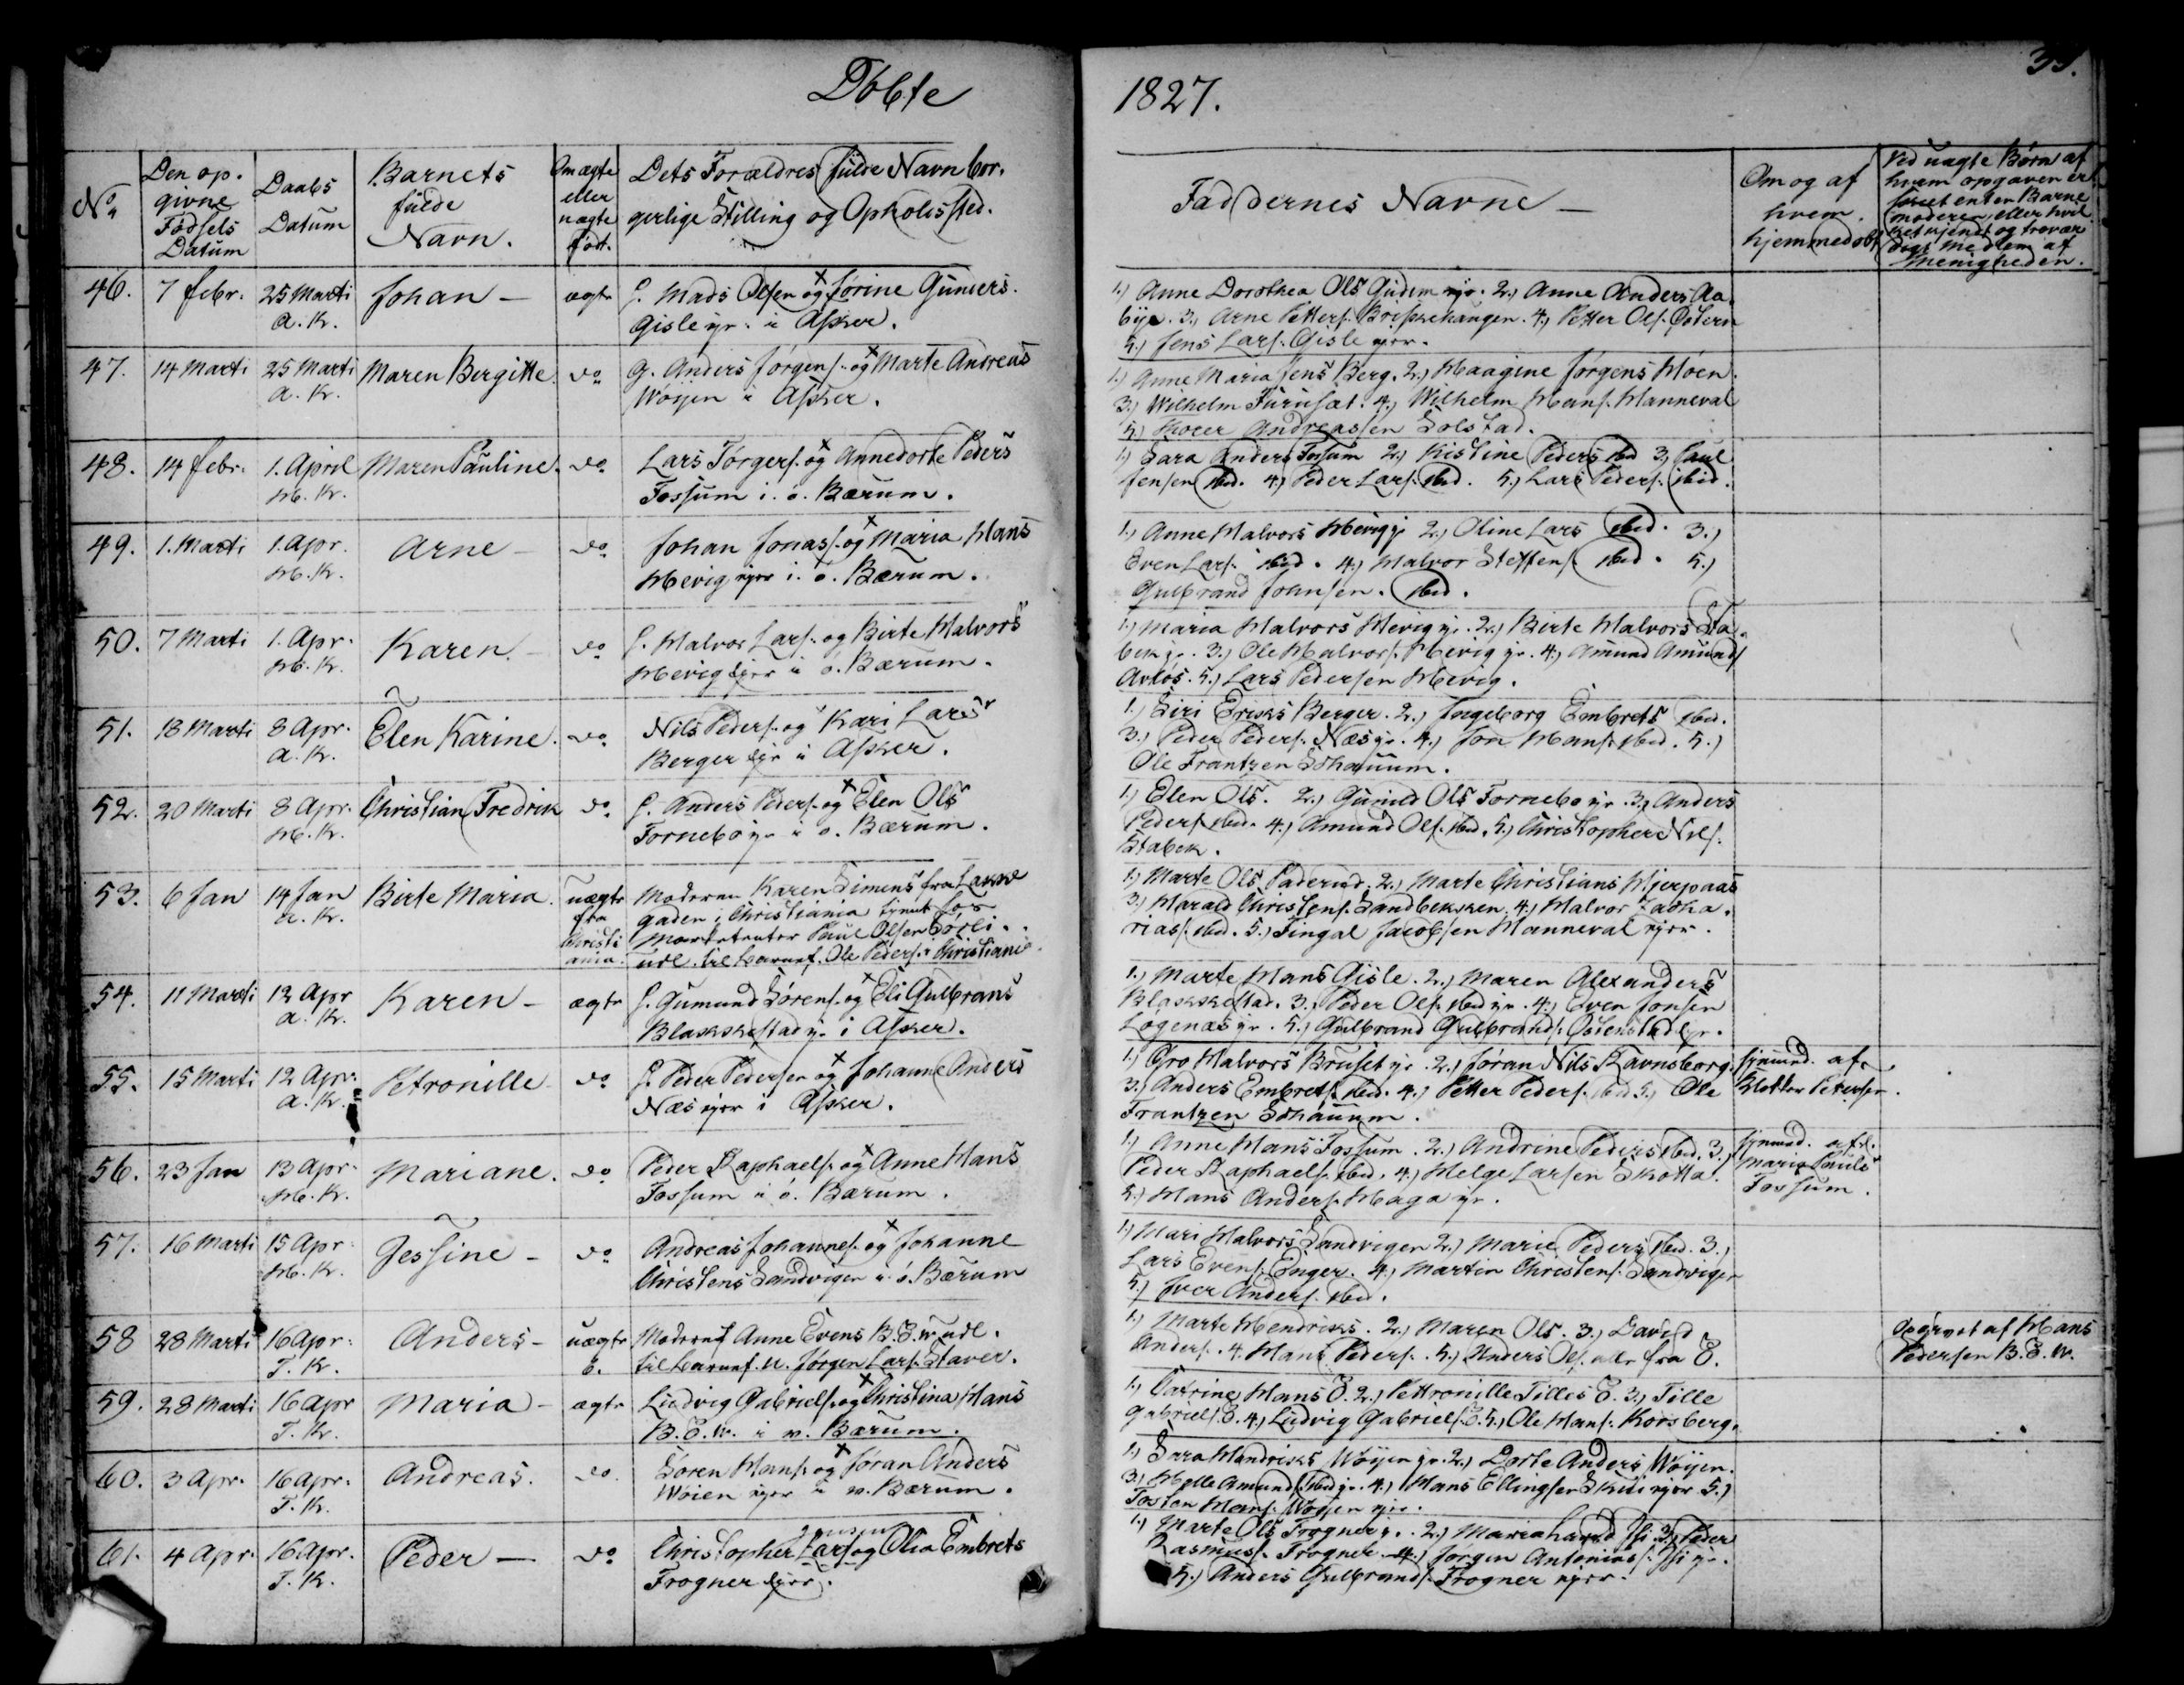 Döbte
1827.
No
Den op-
givne
Födsels
Datum
Daabs
Datum
Barnets
fulde
Navn.
Om ægte
eller
uægte
född.
Dets Forældres fulde Navn bor-
gerlige Stilling og Opholdssted.
Faddernes Navne
Om og af
hvem
hjemmedøbt
Ved uægte Børn af
hvem opgaven er
skeet enten Barne
moderen eller hvil
ket kjendt og trovær
digt medlem af
Menigheden.
46. 7 febr. 25 Marti Johan ægte G. Mads Olsen og Jørine Guners
A. K. Gisle ýe. i Asker.
1.) Anne Dorothea Ols 2.) Anne Anders Aa
býe. 3.) Arne Petters. 4.) Petter Ols.
5.) Jens Lars. Gisle
47. 14 Marti 25 Marti Maren Bergitte do G. Anders Jørgens. og Marte Andreas
A. K. Wøýen i Asker.
1.) Anne Maria Jens Berg. 2.) Haagine Jørgens Moen
3.) Wilhelm Furuset. 4.) Wilhelm Hans. Hanneval
5.) Andreassen Solstad.
48. 14 febr. 1. April Maren Pauline do Lars Torgers. og Annedorte Peders
H. K. Fossum i ö. Bærum.
1.) Sara Anders Fossum 2.) Kistine Peders ibid 3.) Paul
Jensen ibid. 4.) Peder Lars. ibid. 5.) Lars Peders. ibid.
49. 1. Marti 1. Apr. Arne do Johan Jonas. og Maria Hans
H. K. Høvig i ö. Bærum.
1.) Anne Halvors Høvig 2.) Oline Lars ibid. 3.)
Even Lars. ibid. 4.) Halvor Steffens. ibid. 5.)
Gulbrand Johnsen. ibid.
50. 7 Marti 1. Apr. Karen do G. Halvor Lars. og Birte Halvors
H. K. Høvig i ö. Bærum.
1.) Maria Halvors Høvig 2.) Birte Halvors Sta
bek 3.) Ole Halvors. Høvig 4.) Amund Amunds
Avløs. 5.) Lars Pedersen Høvig.
51. 18 Marti 8 Apr. Elen Karine do Nils Peders. og Kari Lars
A. K. Berger i Asker.
1.) Siri Eriks Berger. 2.) Ingeborg Embrets ibid.
3.) Peder Peders. Næs 4.) Jon Hans. ibid. 5.)
Ole Frantzen Schauum.
52. 20 Marti 8 Apr. Christian Fredrik do G. Anders Peders. og Elen Ols
H. K. Fornebo i ö. Bærum.
1.) Elen Ols. 2.) Gunild Ols Fornebo 3.) Anders
Peders. ibid. 4.) Amund Ols. ibid. 5.) Christopher Nils.
Stabek.
53. 6 Jan 14 Jan Birte Maria uægte Moderen Karen Simens fra
A. K. fra gaden i Christiania
Christi Paul Olsen Sörli.
ania. udl. til barnef. Ole Peders. i Christiania
1.) Marte Ols Paderud. 2.) Marte Christians Hjerpaas
3.) Harald Christens. Sandbekken. 4.) Halvor Zacha
rias. ibid. 5.) Fingal Jacobsen Hanneval
54. 11 Marti 12 Apr Karen ægte G. Gumund Sörens. og Eli Gulbrans
A. K. Blakskestad i Asker.
1.) Marte Hans Gisle. 2.) Maren Alexanders
Blakskestad. 3.) Peder Ols. ibid 4.) Even Jonsen
Løgenæs 5.) Gulbrand Gulbrands.
55. 15 Marti 12 Apr. Petronille do G. Peder Pedersen og Johanne Anders
A. K. Næs i Asker.
1.) Gro Halvors Bruset 2.) Jøran Nils Ravnsborg
3.) Anders Embrets. ibid. 4.) Petter Peders. ibid 5.) Ole
Frantzen Schauum.
hjemd. af
Klokker Petersen.
56. 23 Jan 13 Apr. Mariane. do Peder Raphaels. og Anne Hans
H. K. Fossum i ö. Bærum.
1.) Anne Hans Fossum. 2.) Andrine Peders ibid. 3.)
Peder Raphaels. ibid. 4.) Helge Larsen Skotta.
5.) Hans Anders. Haga
hjemd. af
Maria Pauls
Fossum.
57. 16 Marti 15 Apr. Jessine do Andreas Johannes. og Johanne
H. K. Christens Sandvigen i ö. Bærum
1.) Mari Halvors Sandvigen 2.) Marie Peders ibid. 3.)
Lars Evens. Enger. 4.) Martin Christens. Sandvigen
5.) Iver Anders. ibid.
58 28 Marti 16 Apr. Anders uægte Moderen Anne Evens B. E. W. udl.
T. K. til barnef. U. Jørgen Lars. Staver.
1.) Marte Hendriks. 2.) Maren Ols. 3.) David
Anders. 4. Hans Peders. 5.) Anders Ols. alle fra E.
af Hans
Pedersen B. E. W.
59. 28 Marti 16 Apr Maria ægte Ludvig Gabriels. og Christina Hans
T. K. B. E. W. i w. Bærum.
1.) Catrine Hans E. 2.) Pettronille Tilles E. 3.) Tille
Gabriels. E. 4.) Ludvig Gabriels. E. 5.) Ole Hans. Korsberg.
60. 3 Apr. 16 Apr. Andreas. do Sören Hans. og Jøran Anders
T. K. Wøien i w. Bærum.
1.) Sara Hendriks Wøýen 2.) Dorte Anders Wøýen.
3.) Helle Amunds. ibid 4.) Hans Ellingsen Skui 5.)
Tosten Hans. Wøýen
61. 4 Apr. 16 Apr. Peder do Christopher Lars. og Olia Embrets
T. K. Frogner
1.) Marte Ols Frogner 2.) Maria 3.) Peder
Rasmus. Frogner 4.) Jørgen Antonius.
5.) Anders Gulbrands. Frogner